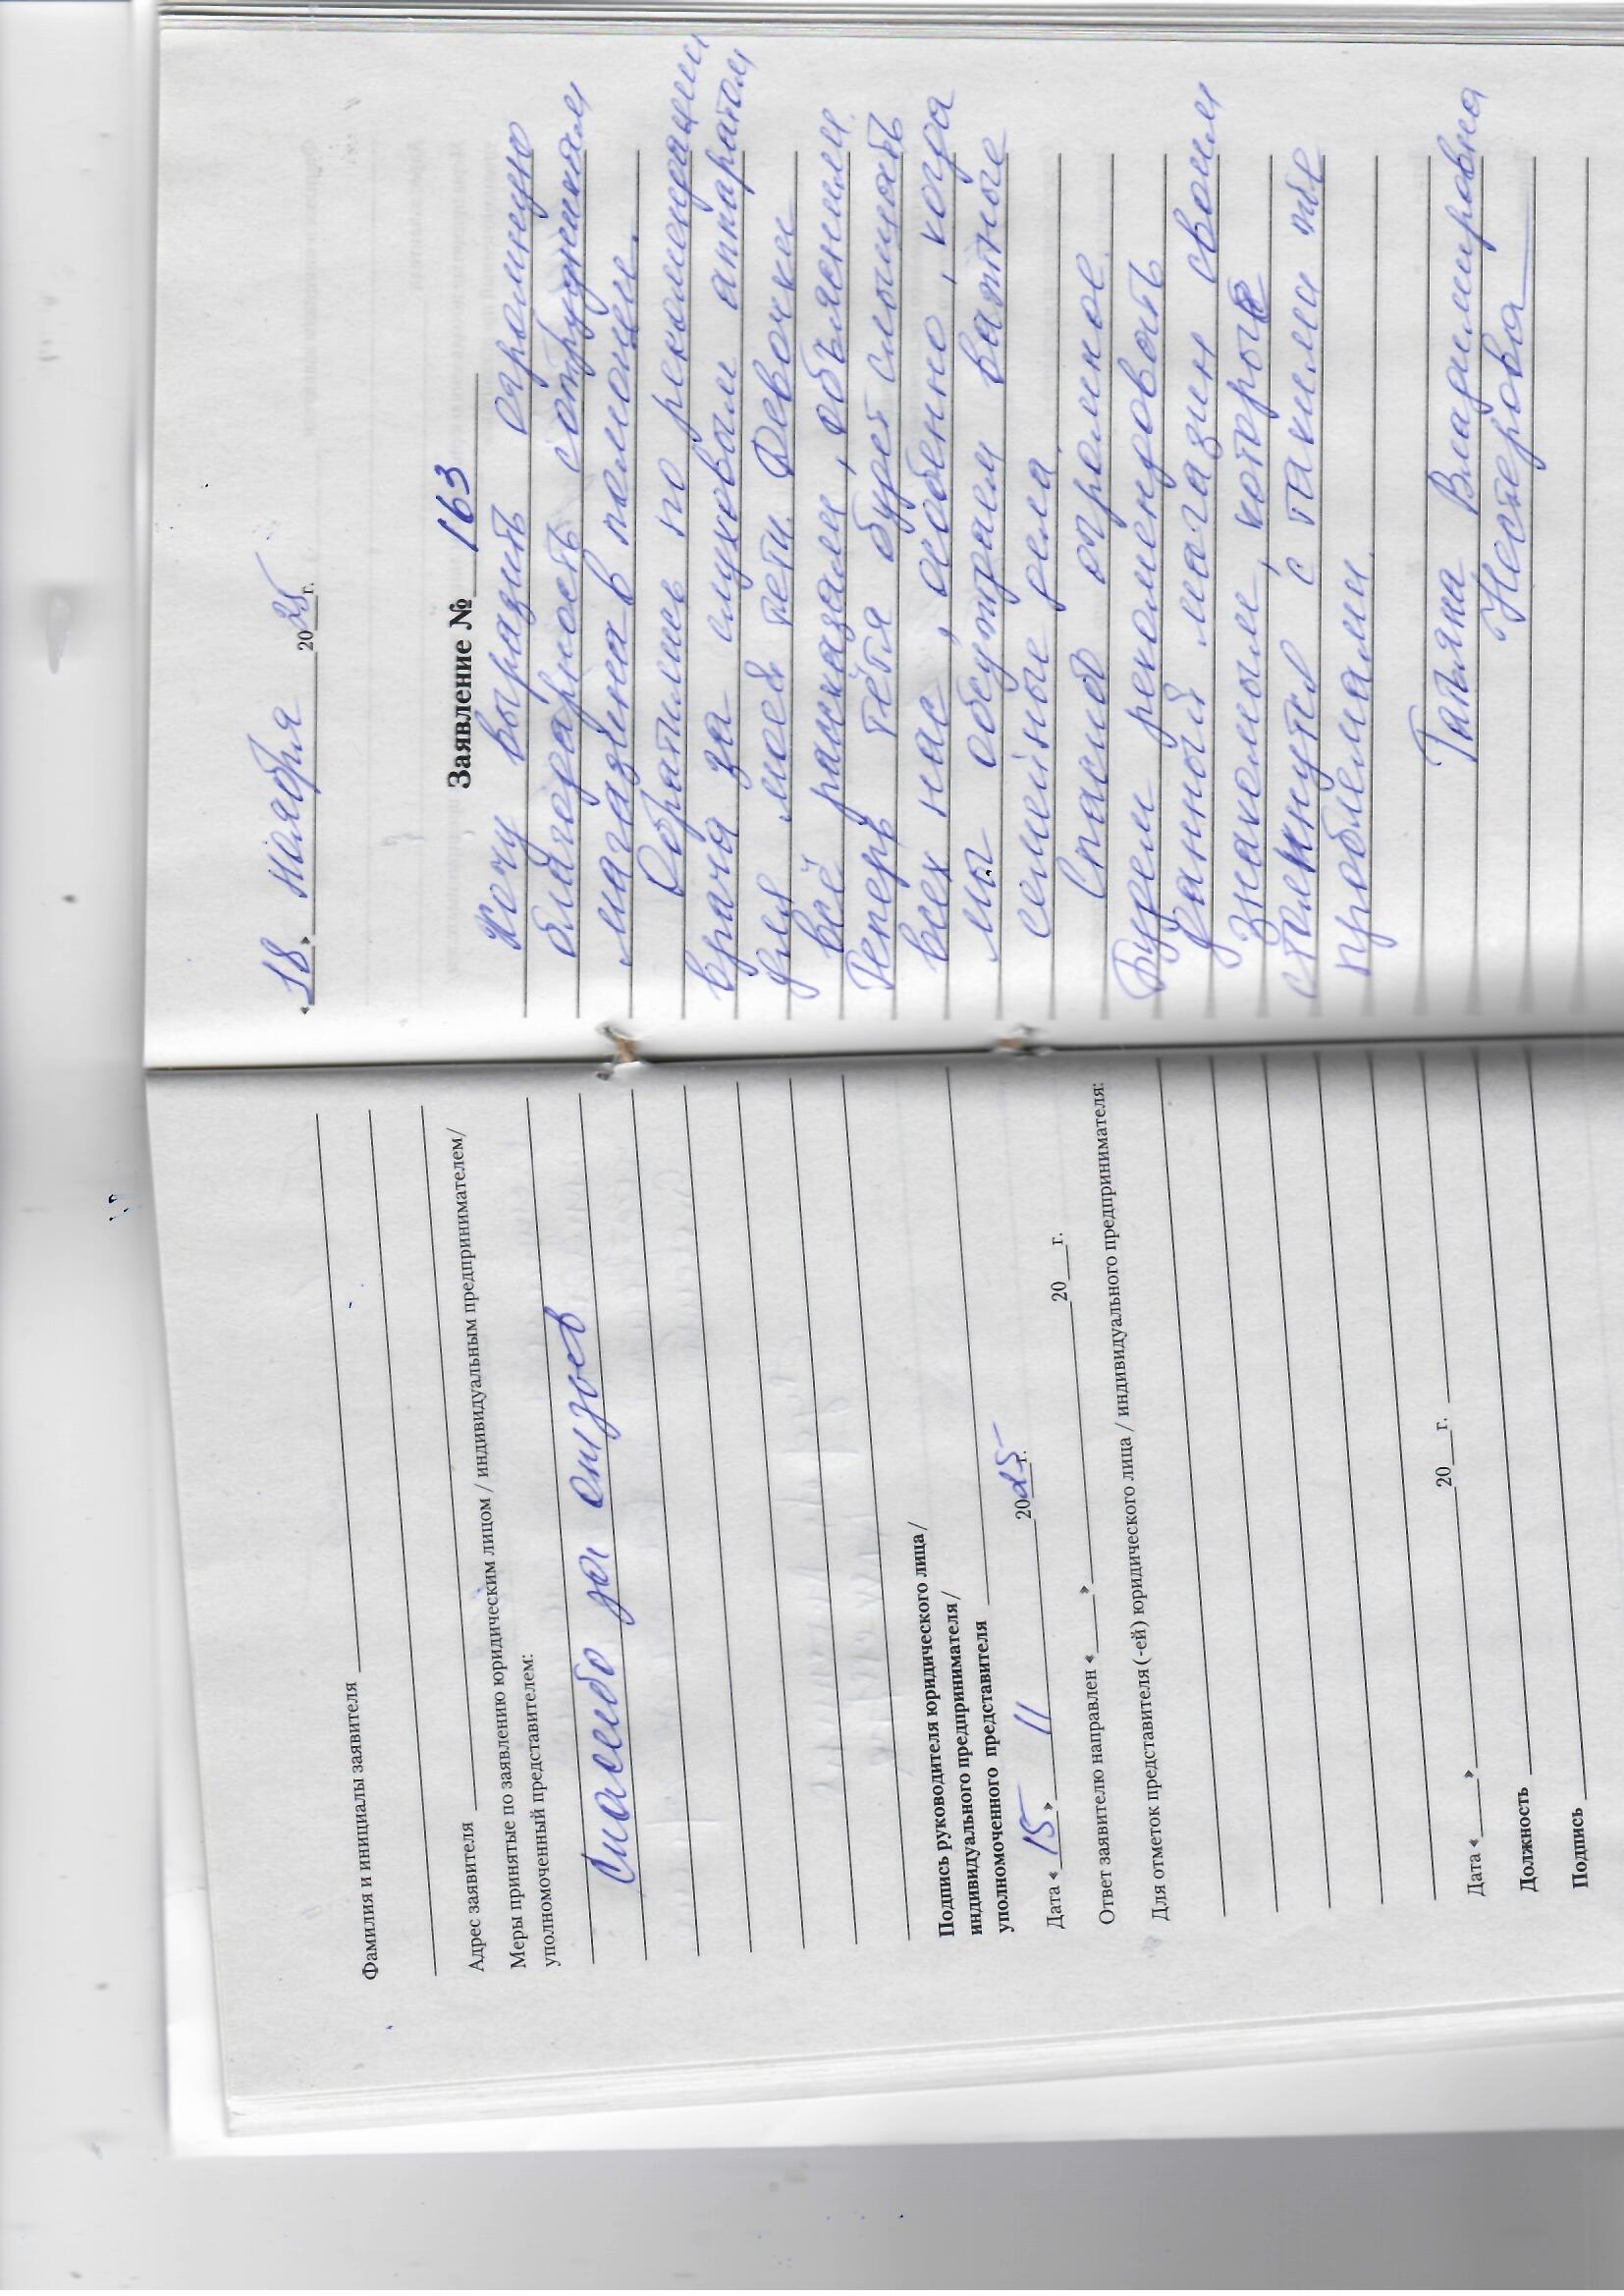 Фамилия и инициалы заявителя
Адрес заявителя
Меры принятые по заявлению юридическим лицом / индивидуальным предпринимателем/
уполномоченный представителем:
Спасибо за отзыв
Подпись руководителя юридического лица/
индивидуального предпринимателя/
уполномоченного представителя
Дата « 15 » 11 2025 г.
Ответ заявителю направлен « » 20 г.
Для отметок представителя(-ей) юридического лица / индивидуального предпринимателя:
Дата « » 20 г.
Должность
Подпись
« 18 » ноября 2025 г.
Заявление № 163
Хочу выразить огромную
благодарность сотрудникам
магазина в помощи.
Обратились по рекомендации
врача за слуховым аппаратом
для моей тёти. Девочки
всё рассказали, объяснили.
Теперь тётя будет слышать
всех нас, особенно, когда
мы обсуждаем важные
семейные дела.
Спасибо огромное.
Будем рекомендовать
данный магазин своим
знакомым, которые
столкнутся с такими же
проблемами.
Татьяна Владимировна
Нестерова